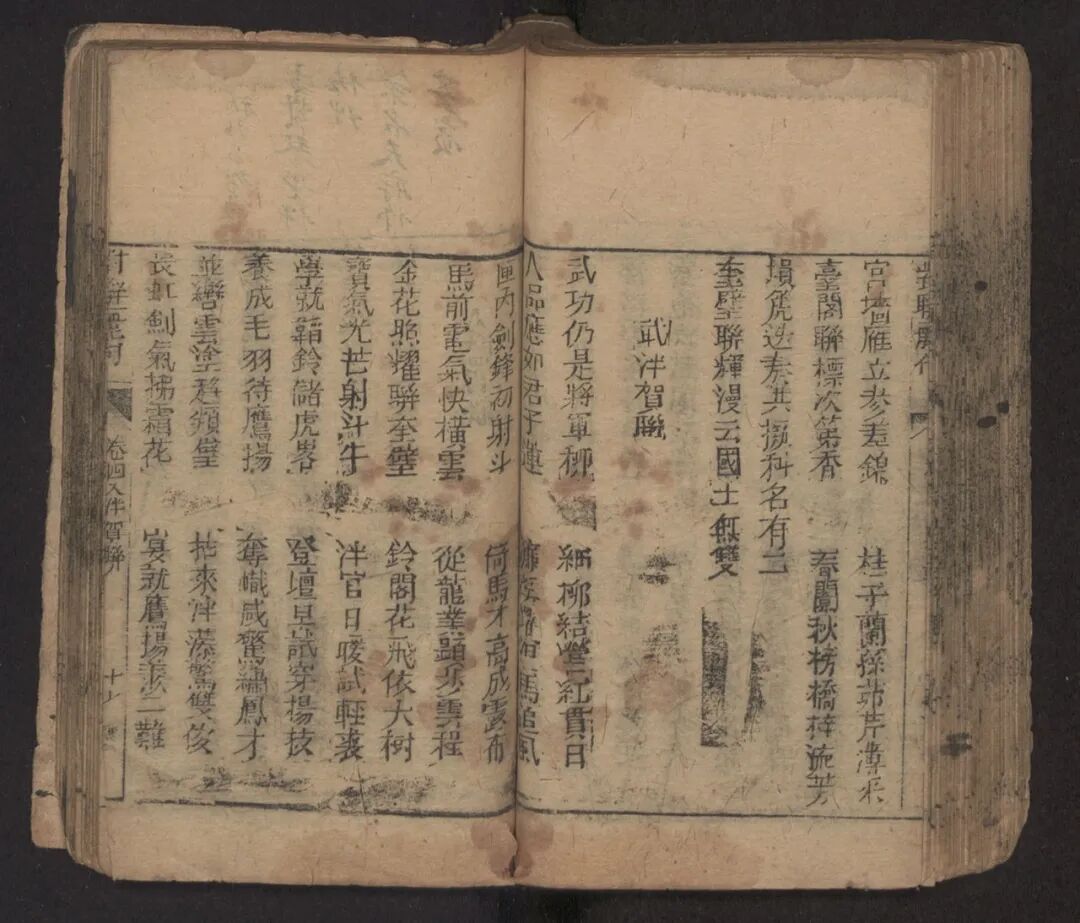 宮墻雁立参差錦　桂子蘭孫茆芹薄采
臺閣聯標次第香　春蘭秋榜橋梓流芳
塤篪迭奏共掇科名有二
奎壁聯輝漫云國士無雙
武泮賀聯
武功仍是將軍柳　細柳結營紅貫日
人品應如君子蓮　馬追風
匣內劍鋒初射斗　倚馬才高成露布
馬前電氣快橫雲　從龍業顕步雲程
金花照耀聯奎壁　鈴閣花飛依大樹
寶氣光芒射斗牛　泮宮日暖試輕裘
學就韜鈐儲虎畧　登壇旦試穿楊技
養成毛羽待鷹揚　奪幟咸驚鳳才
並轡雲塗移頻璧　拈來泮藻驚雙俊
長虹劍氣拂霜花　宴就鷹揚羨二難
卷四　泮賀聯　十七